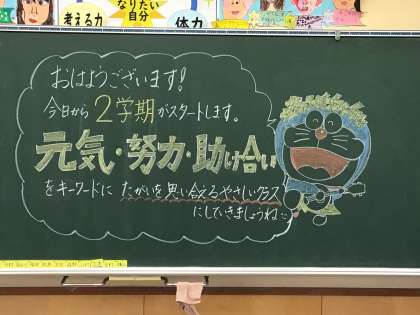 考える力
なりたい
自分
体力
おはようございます!
今日から2学期がスタートします。
元気・努力・助け合い
をキーワードに たがいを思い合えるやさしいクラス
にしていきましょうね